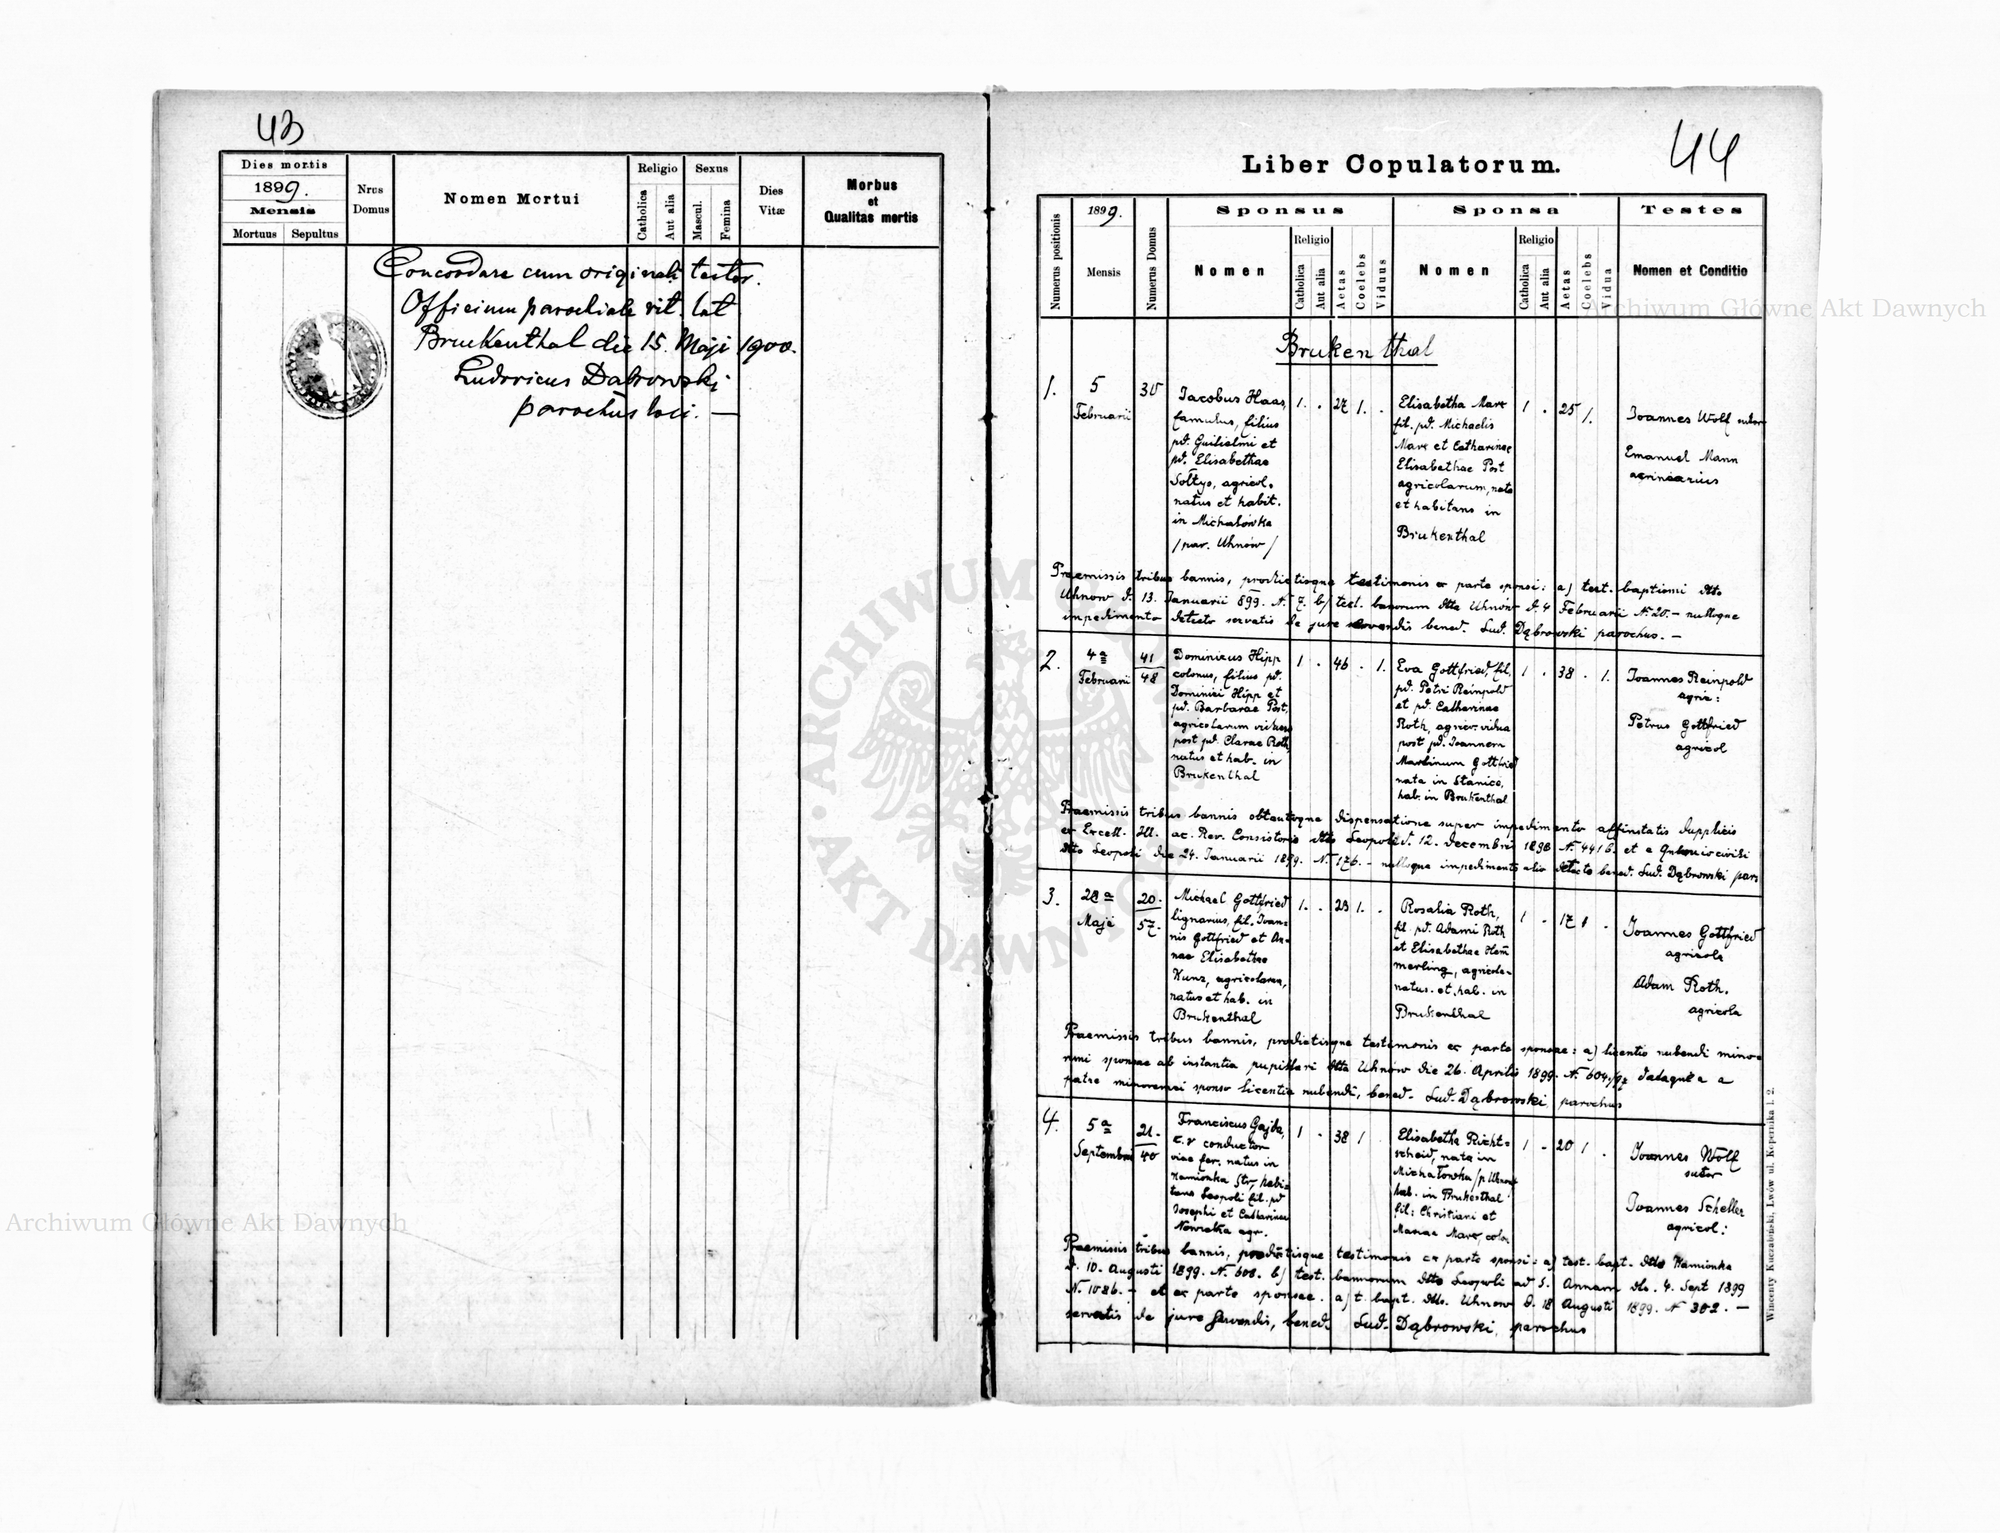 43
Dies mortis
1899.
Mensis
Mortuus
Sepultus
Nrus Domus
Nomen Mortui
Religio
Catholica
Aut alia
Sexus
Mascul.
Femina
Dies Vitæ
Morbus
et
Qualitas mortis
Concordare cum originali testor.
Officium parochiale rit. lat
Bruckenthal die 15. Maji 1900.
Ludovicus Dąbrowski
parochus loci. —
44
Liber Copulatorum.
Numerus positionis
1899.
Mensis
Numerus Domus
Sponsus
Nomen
Religio
Catholica
Aut alia
Aetas
Coelebs
Viduus
Sponsa
Nomen
Religio
Catholica
Aut alia
Aetas
Coelebs
Vidua
Testes
Nomen et Conditio
Brukenthal
1.
5
Februarii
30
Jacobus Haas,
famulus, filius
pd. Guilielmi et
pd. Elisabethae
Sołtys, agricol.
natus et habit.
in Michałówka
/par. Uhnów/
1. . 27 1. .
Elisabetha Marx
fil. pd. Michaelis
Marx et Catharinae
Elisabethae Post
agricolarum, nata
et habitans in
Brukenthal
1 . 25 1.
Joannes Wolf sutor
Emanuel Mann
Praemissis tribus bannis, productisque testimonis ex parte sponsi: a) test. baptismi dtto
Uhnow d. 13. Januarii 899. N. 7. b) test. bannorum dtto Uhnow d. 4 Februarii N. 20. — nulloque
impedimento detecto servatis de jure servandis bened. Lud. Dąbrowski parochus. —
2.
4a
Februarii
41
48
Dominicus Hipp
colonus, filius pd.
Dominici Hipp et
pd. Barbarae Post,
agricolarum viduus
post pd. Clarae Roth,
natus et hab. in
Brukenthal
1 . 46 . 1.
Eva Gottfried, fil.
pd. Petri Reinpold
et pd. Catharinae
Roth, agricr. vidua
post pd. Joannem
Martinum Gottfried
nata in Stanice,
hab. in Brukenthal
1 . 38 . 1.
Joannes Reinpold
agric:
Petrus Gottfried
agricol
Praemissis tribus bannis obtentaque dispensatione super impedimento affinitatis dupplicis
ex Excell. Ill. ac. Rev. Consistorio dtto Leopoli d. 12. Decembris 1898 N. 4416. et a Gubernio civili
dtto Leopoli die 24. Januarii 1899. N. 176. — nulloque impedimento alio detecto bened. Lud. Dąbrowski par.
3.
28a
Maji
20.
57.
Michael Gottfried
lignarius, fil. Joan-
nis Gottfried et An-
nae Elisabethae
Kunz, agricolarum,
natus et hab. in
Brukenthal
1. . 23 1. .
Rosalia Roth,
fil. pd. Adami Roth
et Elisabethae Hem̄
merling, agricola-
natus. et. hab. in
Brukenthal
1 . 17 1 .
Joannes Gottfried
agricola
Adam Roth.
agricola
Praemissis tribus bannis, productisque testimonis ex parte sponsae: a) licentio nubendi mino-
reni sponsae ab instantia pupillari dtto Uhnów die 26. Aprilis 1899. N. 604./97 datague a
patre minorenni sponso licentia nubendi, bened. Lud. Dąbrowski, parochus
4.
5a
Septembris
21.
40
Franciscus Gajda,
c. r conductor
viae fer. natus in
Kamionka Str, habi-
tans Leopoli fil. pd
Josephi et Catharinae
Nowicka agr.
1 . 38 1
Elisabetha Richt-
scheid, nata in
Michałowka /p. Uhnów
hab. in Brukenthal
fil: Christiani et
Mariae Marx, colon.
1 . 20 1 .
Joannes Wolf
sutor
Joannes Scheller
agricol:
Praemissis tribus bannis, productisque testimonis ex parte sponsi: a) test. bapt. dtto Kamionka
d. 10. Augusti 1899. N. 608. b) test. bannorum dtto Leopoli ad S. Annam dto. 4. Sept 1899
N. 1086. — et ex parte sponsae. a) t. bapt. dto. Uhnow d. 18 Augusti 1899. N 302. —
servatis de jure servandis, bened. Lud. Dąbrowski, parochus
Wincenty Kuczabiński, Lwów ul. Kopernika l. 2.
Archiwum Główne Akt Dawnych
Archiwum Główne Akt Dawnych
ARCHIWUM GŁÓWNE
AKT DAWNYCH